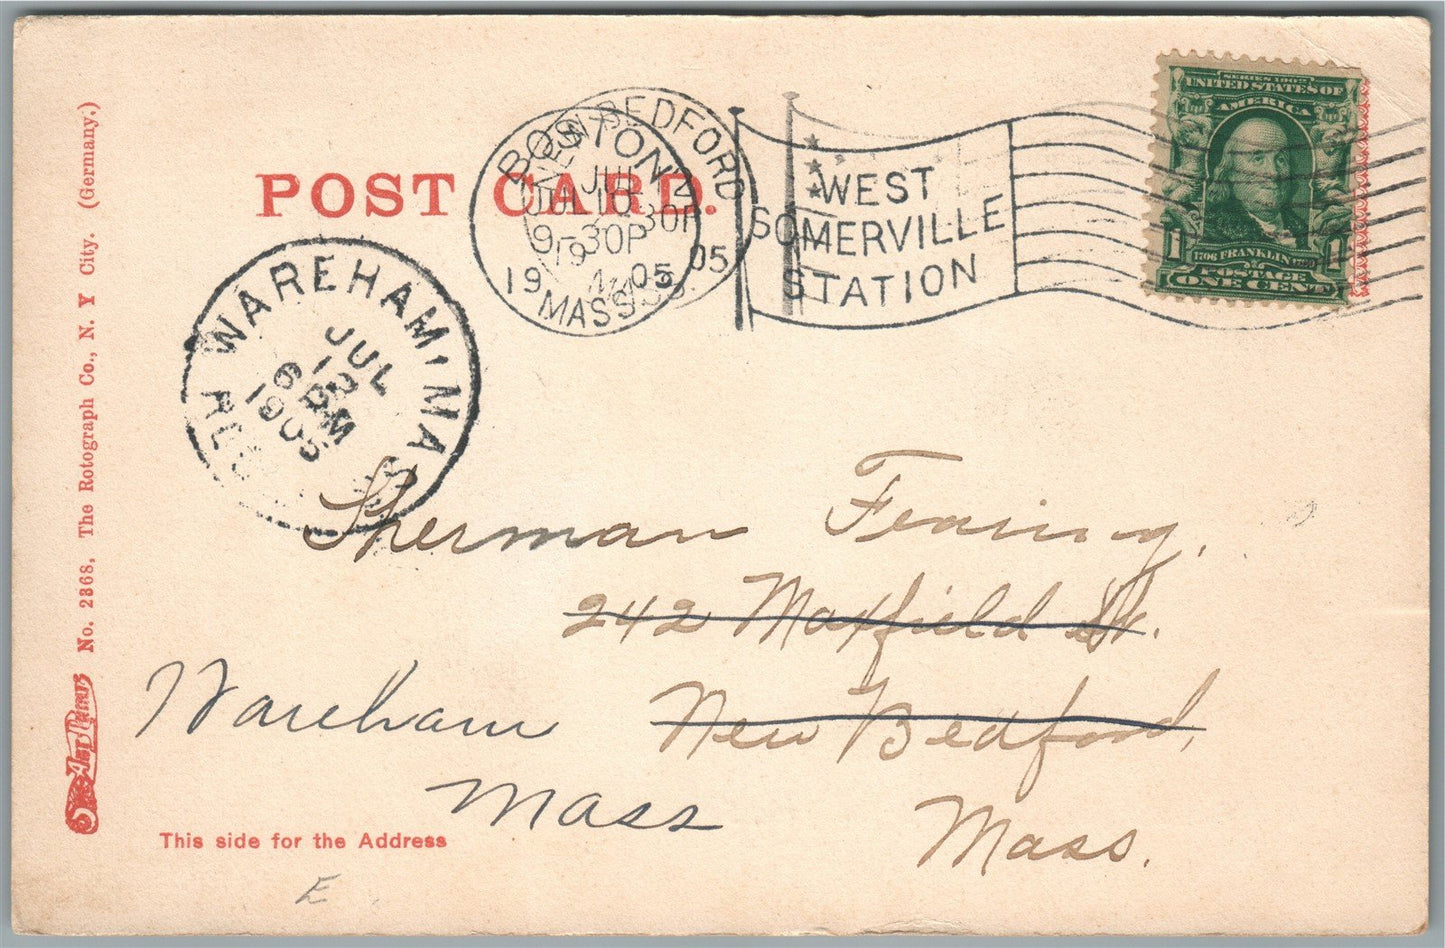 POST CARD.
No. 2368. The Rotograph Co., N. Y City. (Germany.)
Art Prints
BOSTON
JUL 10
9-30P
1905
MASS.
NEW BEDFORD
JUL
30P
19 05
MASS.
WEST
SOMERVILLE
STATION
SERIES 1902
UNITED STATES OF
AMERICA
1706 FRANKLIN 1790
POSTAGE
1 ONE CENT 1
WAREHAM, MASS
JUL
12
6 PM
1905
Sherman Fearing,
242 Maxfield St.
New Bedford,
Mass.
Wareham
Mass
This side for the Address
E